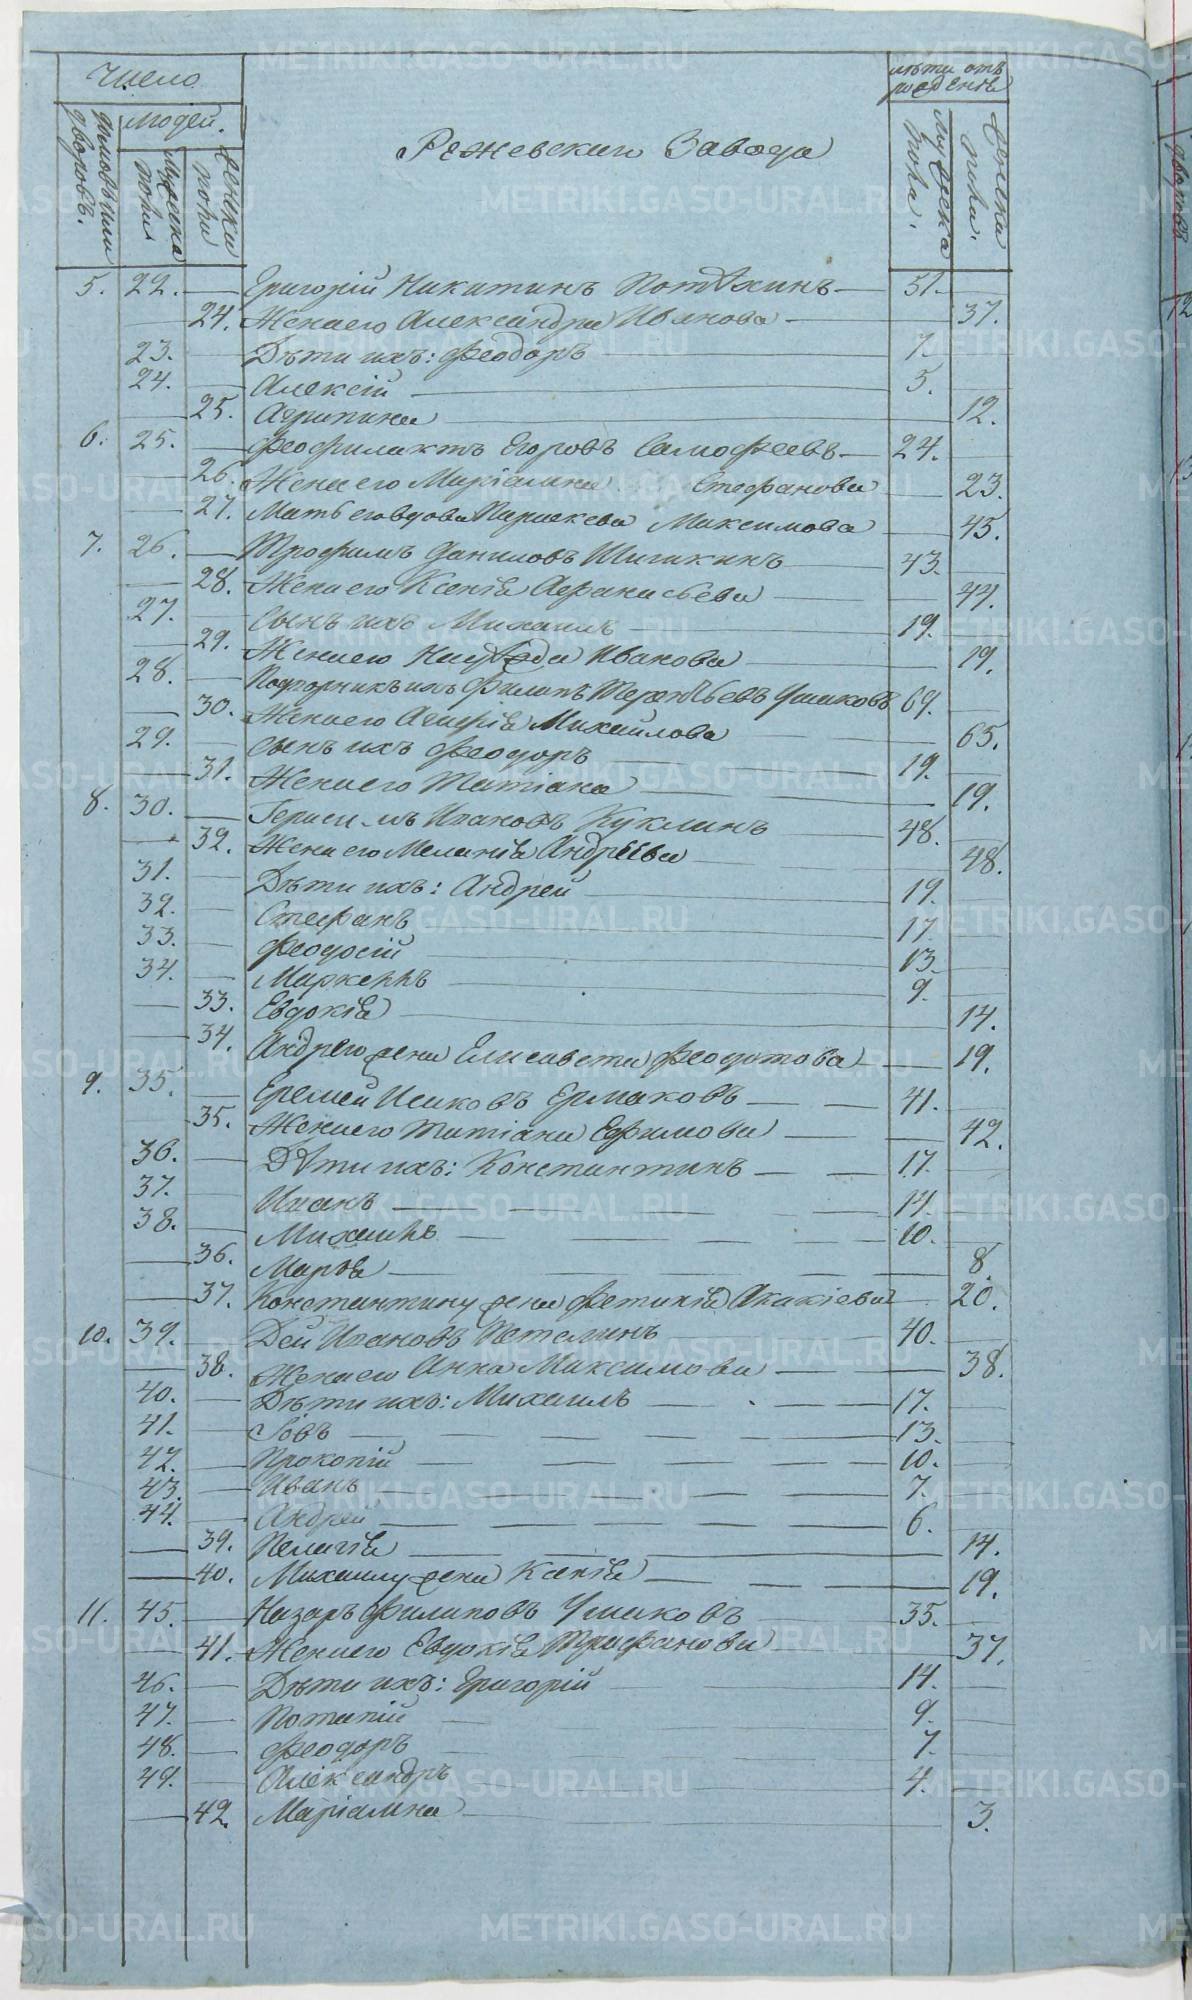 Число
людей.
дворовъ.
мужеска пола
женска пола
Режевскаго Завода
лѣты отъ рожденія
мужеска пола.
женска пола.
5. 22. Григорій Никитинъ Потѣхинъ 31.
24. Жена его Александра Иванова 37.
23. Дѣти ихъ: Феодоръ 7.
24. Алексій 5.
25. Агрипина 12.
6. 25. Феофилактъ Егоровъ Самофеевъ 24.
26. Жена его Маріамна Стефанова 23.
27. Мать его вдова Параскева Максимова 45.
7. 26. Трофимъ Даниловъ Шишкинъ 43.
28. Жена его Ксенія Афанасьева 44.
27. Сынъ ихъ Михаилъ 19.
29. Жена его Иванова 19.
28. Филипъ Терентьевъ Ушаковъ 69.
30. Жена его Агафія Михайлова 65.
29. Сынъ ихъ Феодоръ 19.
31. Жена его Татіана 19.
8. 30. Герасимъ Ивановъ Куклинъ 48.
32. Жена его Меланія Андреева 48.
31. Дѣти ихъ: Андрей 19.
32. Стефанъ 17.
33. Феодосій 13.
34. Маркеллъ 9.
33. Евдокія 14.
34. Андрея жена Елисавета Феодотова 19.
9. 35. Еремей Исаковъ Ермаковъ 41.
35. Жена его Татіана Ефимова 42.
36. Дѣти ихъ: Константинъ 17.
37. Иванъ 14.
38. Михаилъ 10.
36. Марѳа 8.
37. Константину жена Фетинія Акакіева 20.
10. 39. Дей Ивановъ Петелинъ 40.
38. Жена его Анна Максимова 38.
40. Дѣти ихъ: Михаилъ 17.
41. Іовъ 13.
42. Прокопій 10.
43. Иванъ 7.
44. Андрей 6.
39. Пелагія 14.
40. Михаилу жена Ксенія 19.
11. 45. Назаръ Филиповъ Ушаковъ 35.
41. Жена его Евдокія Трифанова 37.
46. Дѣти ихъ: Григорій 14.
47. Потапій 9.
48. Феодоръ 7.
49. Александръ 4.
42. Маріамна 3.
METRIKI.GASO-URAL.RU